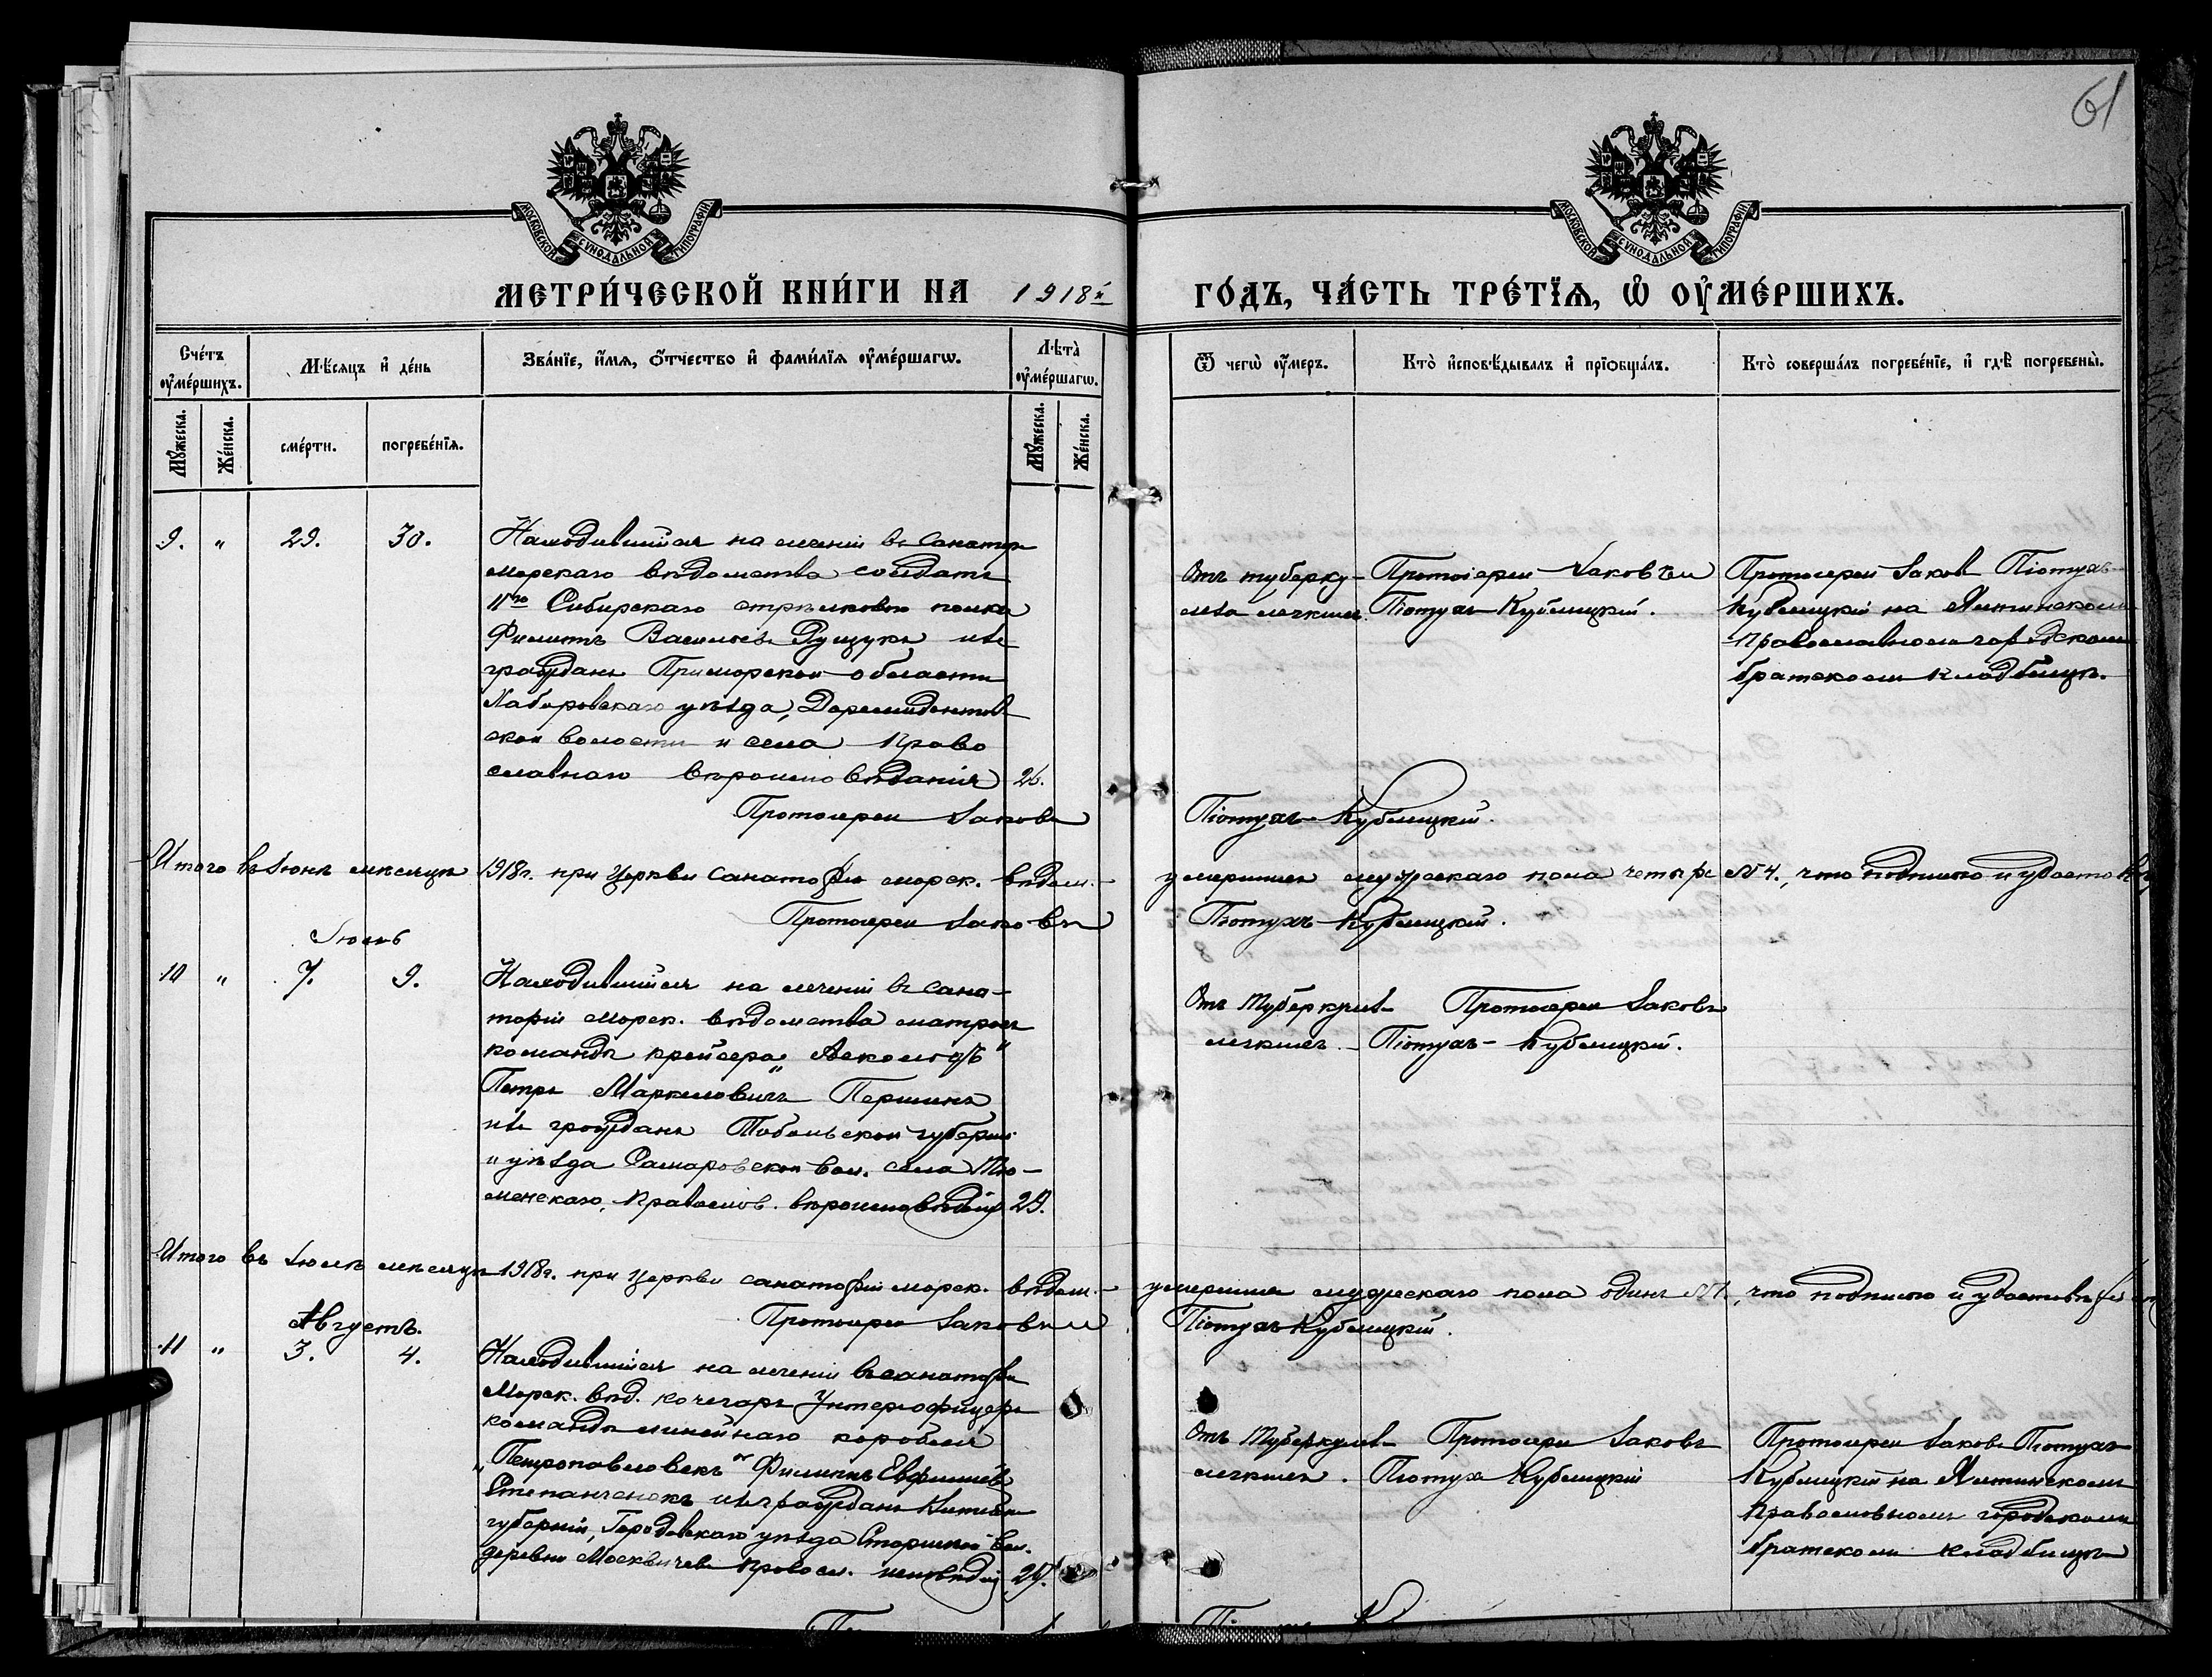 61
МОСКОВСКОЙ СУНОДАЛЬНОЙ ТИПОГРАФІИ
МОСКОВСКОЙ СУНОДАЛЬНОЙ ТИПОГРАФІИ
МЕТРИ́ЧЕСКОЙ КНИ́ГИ НА 1918й ГО́ДЪ, ЧА́СТЬ ТРЕ́ТЇѦ, Ѡ҆ ОУ҆МЕ́РШИХЪ.
Сче́тъ оу҆ме́ршихъ.
Мѣ́сяцъ и҆ де́нь
Зва́нїе, и҆́мѧ, ѻ҆́тчество и҆ фами́лїѧ оу҆ме́ршагѡ.
Лѣ́та оу҆ме́ршагѡ.
Ѿ чегѡ̀ оу҆́меръ.
Кто̀ и҆сповѣ́дывалъ и҆ прїѻбща́лъ.
Кто̀ соверша́лъ погребе́нїе, и҆ гдѣ̀ погребены̀.
Мꙋ́жеска.
Же́нска.
сме́рти.
погребе́нїѧ.
Мꙋ́жеска.
Же́нска.
9. " 29. 30.
Находившійся на леченіи въ санатор
морскаго вѣдомства солдатъ
11го Сибирскаго стрѣлковаго полка
Филиппъ Васильевъ изъ
гражданъ Приморской области
Хабаровскаго уѣзда,
ской волости и села Право
славнаго вѣроисповѣданія 26.
Отъ туберку-
леза легкихъ.
Протоіерей Іаковъ
Піотухъ-Кублицкій.
Протоіерей Іаковъ Піотухъ-
Кублицкій на Ялтинскомъ
православномъ городскомъ
братскомъ кладбищѣ.
Протоіерей Іаковъ Піотухъ-Кублицкій.
Итого въ Іюнѣ мѣсяцѣ 1918г. при церкви санаторіи морск. вѣдом. умершихъ мужскаго пола четыре №4., что подписью и удостовѣ
Протоіерей Іаковъ Піотухъ-Кублицкій.
Іюль
10 " 7. 9.
Находившійся на леченіи въ сана-
торіи морск. вѣдомства матросъ
команды крейсера „Аскольдъ"
Петръ Маркеловичъ Першинъ
изъ гражданъ Тобольской губерніи
и уѣзда Самаровской вол. села Тю-
менскаго, православ. вѣроисповѣданія 29.
Отъ туберкулеза
легкихъ.
Протоіерей Іаковъ
Піотухъ-Кублицкій.
Итого въ Іюлѣ мѣсяцѣ 1918г. при церкви санаторіи морск. вѣдом. умершихъ мужскаго пола одинъ №1, что подписью и удостовѣ
Протоіерей Іаковъ Піотухъ Кублицкій.
Августъ.
11 " 3. 4.
Находившійся на леченіи въ санаторіи
Морск. вѣд. кочегаръ Унтеръ-офицеръ
команды линейнаго корабля
„Петропавловскъ" Филиппъ Евфиміевъ
Степанченокъ изъ гражданъ Витебск
губерніи, Городокскаго уѣзда вол.
деревни Москвичева православ. исповѣдан 29.
Отъ туберкулеза
легкихъ.
Протоіерей Іаковъ
Піотухъ Кублицкій
Протоіерей Іаковъ Піотухъ
Кублицкій на Ялтинскомъ
православномъ городскомъ
братскомъ кладбищѣ